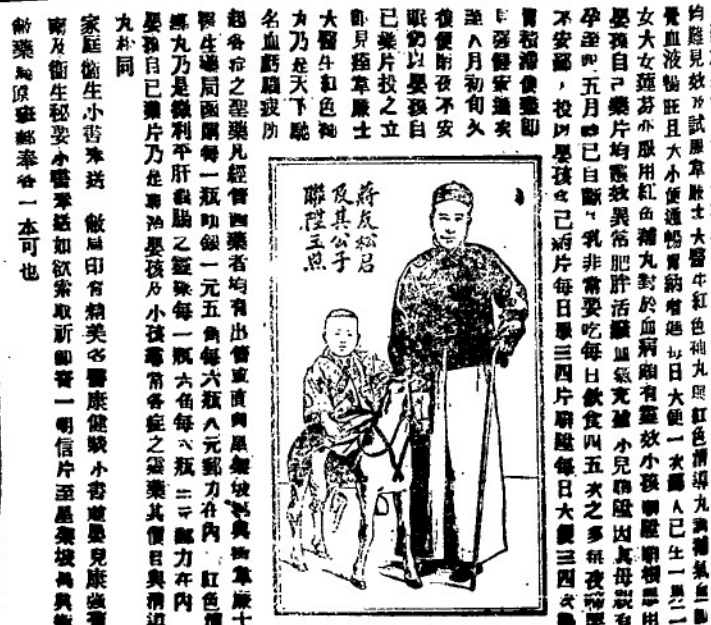 均難見效及試服韋廉士大醫生紅色補丸與紅色清導丸調補氣血
覺血液暢旺且大小便通暢胃納增進每日大便一次鄙人已生一男二
女大女蓮芬亦服用紅色補丸對於血病頗有靈效小孩聯陞
嬰孩自己藥片均靈效異常肥胖活潑血氣充盈小兒聯陞因其母親有
孕至四五月時已自斷乳非常要吃每日飲食四五次之多每夜啼哭
不安鄙投以嬰孩自己藥片每日服三四片聯陞每日大便三四次
胃積滯便遂即
日強健安適次
至八月初旬久
復便閉夜不安
眠仍以嬰孩自
己藥片投之立
即見痊韋廉士
大醫生紅色補
丸乃是天下馳
名血虧腦疲所
蔣友松君
及其公子
聯陞玉照
起各症之聖藥凡經售西藥者均有出售或直向星架坡韋廉士
醫生藥局函購每一瓶叻銀一元五角每六瓶八元郵力在內 紅色清
導丸乃是微利平肝潤腸之靈藥每一瓶六角每六瓶三元郵力在內
嬰孩自己藥片乃是專治嬰孩及小孩尋常各症之靈藥其價目與清導
丸相同
家庭衛生小書奉送 敝局印有精美名醫康健談小書並嬰兒康強
南及衛生秘要小書奉送如欲索取祈即寄一明信片至星架坡
敝藥局原班郵奉各一本可也